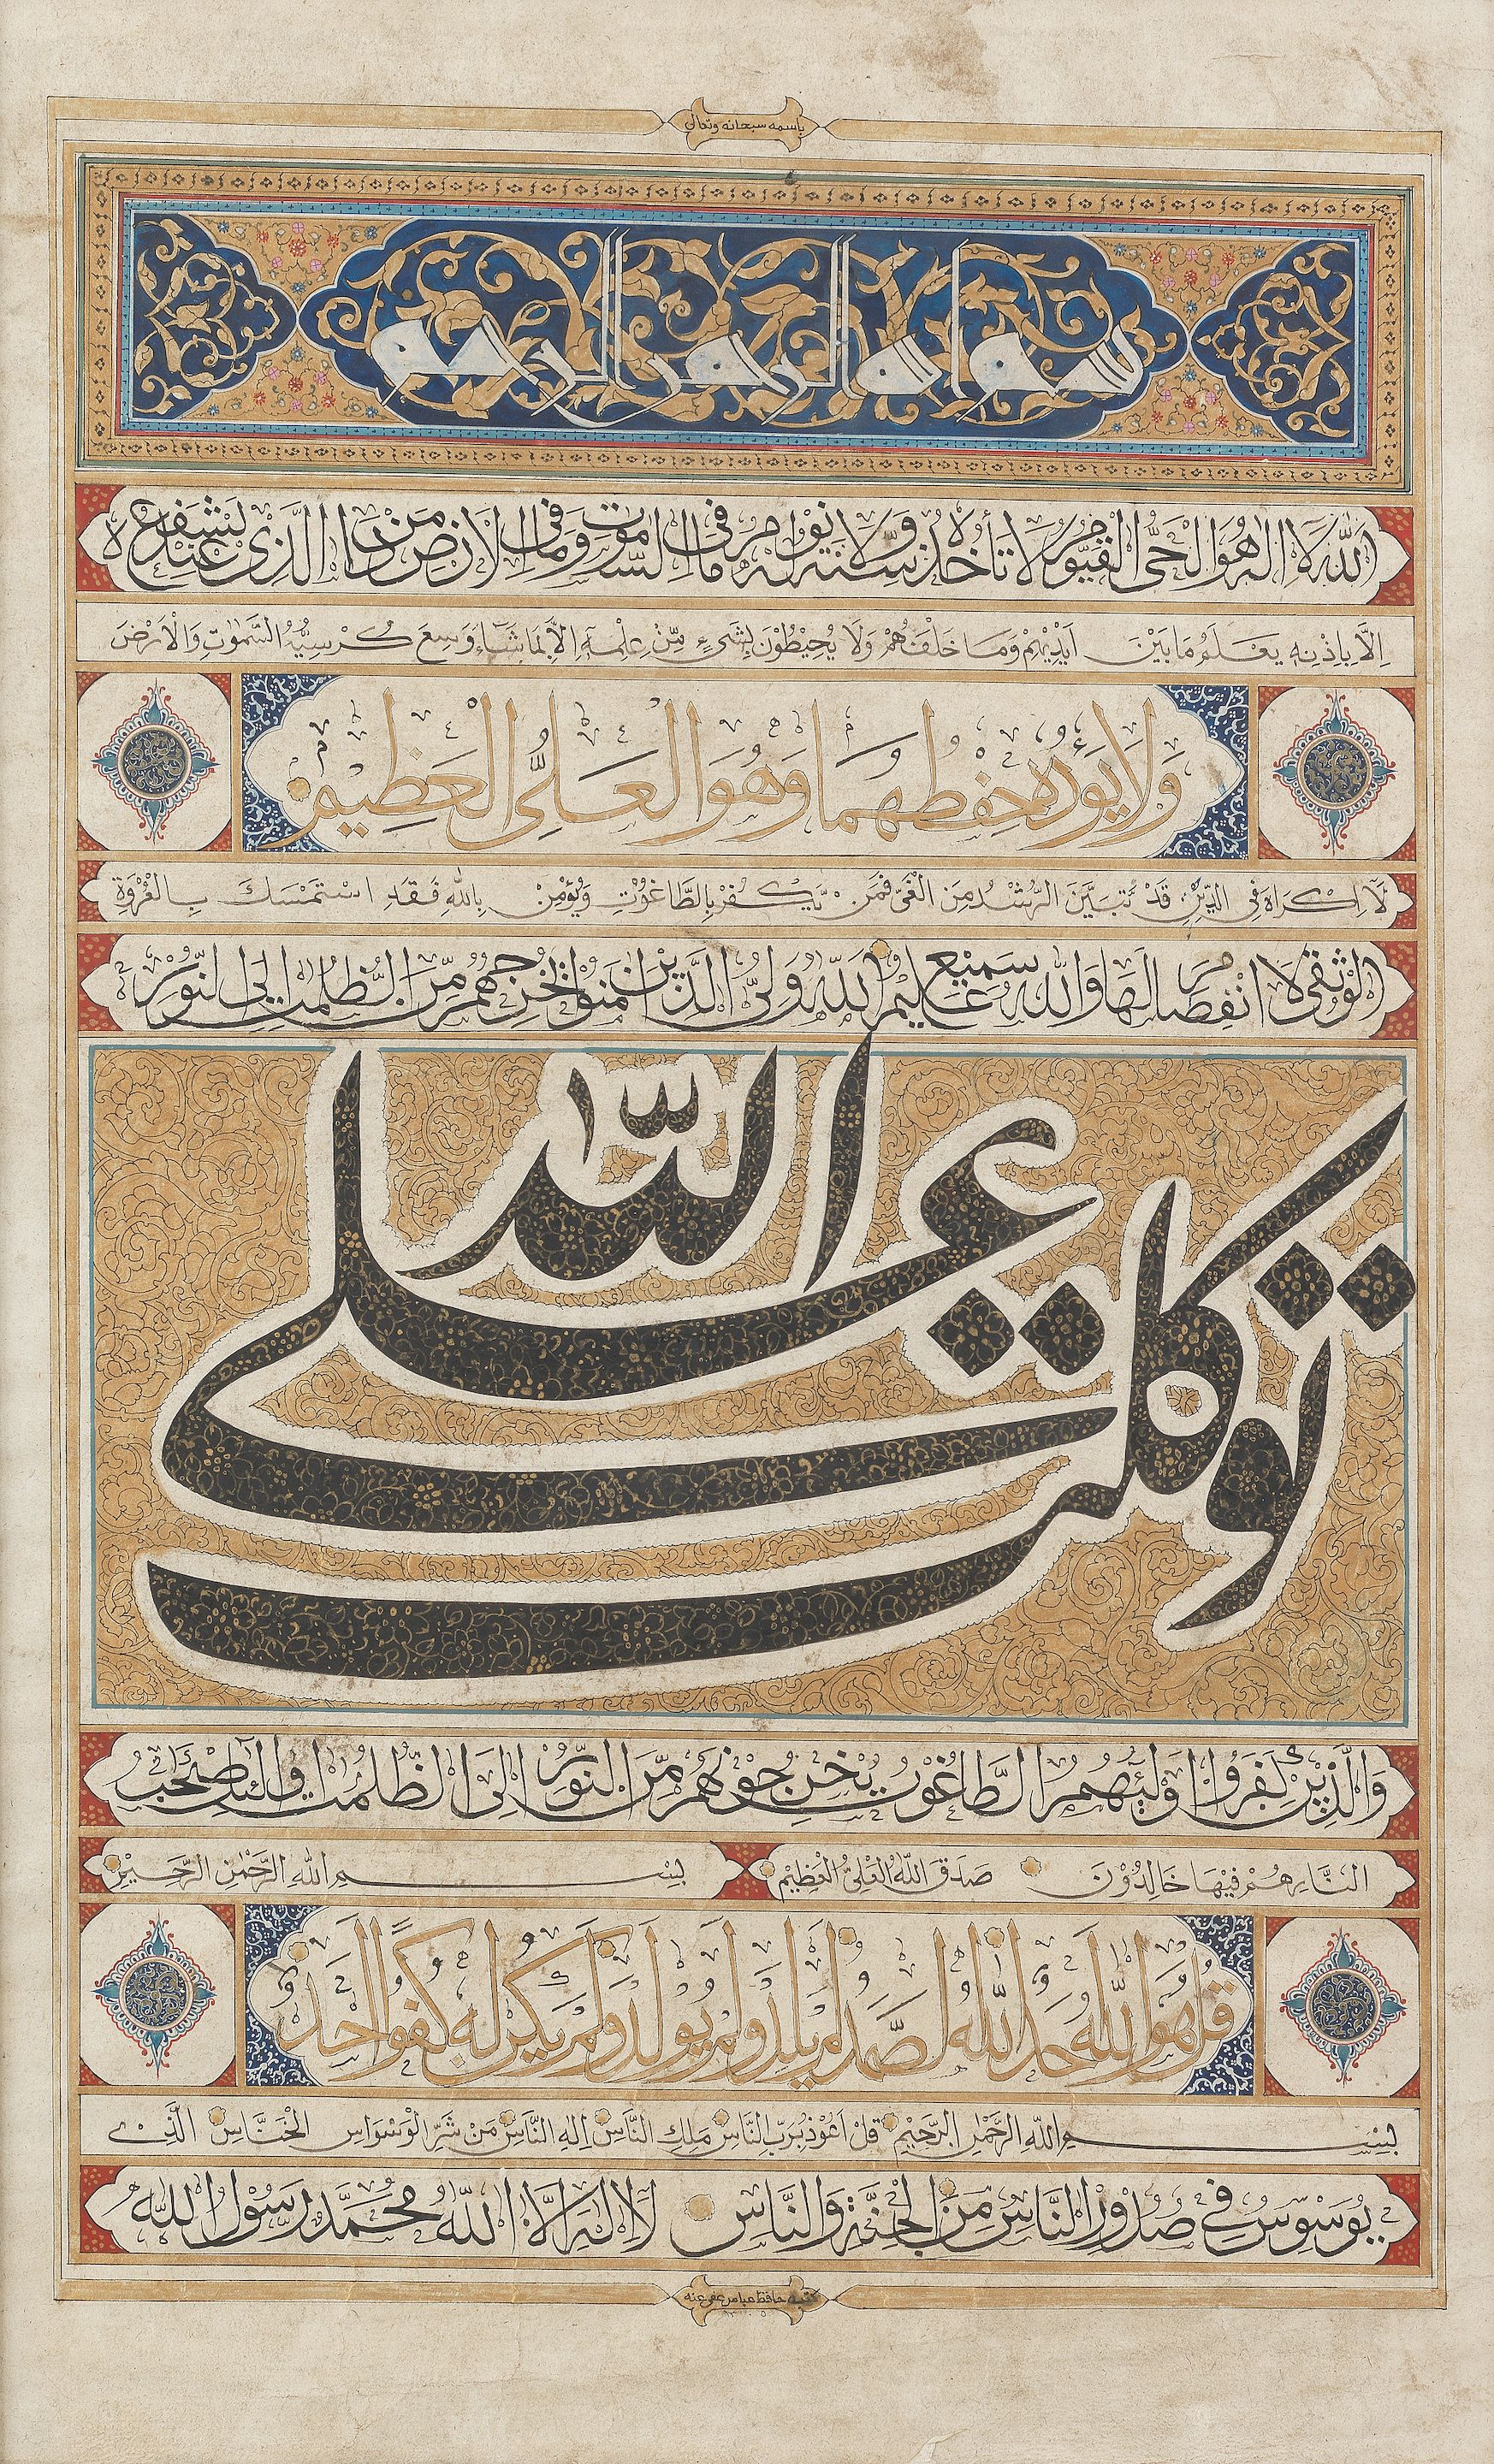 باسمه سبحانه وتعالى
بسم الله الرحمن الرحيم
اَللّٰهُ لَا اِلٰهَ اِلَّا هُوَ الْحَىُّ الْقَيُّوْمُ لَا تَأْخُذُهٗ سِنَةٌ وَّلَا نَوْمٌ لَهٗ مَا فِى السَّمٰوٰتِ وَمَا فِى الْاَرْضِ مَنْ ذَا الَّذِىْ يَشْفَعُ عِنْدَهٗ
اِلَّا بِاِذْنِهٖ يَعْلَمُ مَا بَيْنَ اَيْدِيْهِمْ وَمَا خَلْفَهُمْ وَلَا يُحِيْطُوْنَ بِشَىْءٍ مِّنْ عِلْمِهٖٓ اِلَّا بِمَا شَآءَ وَسِعَ كُرْسِيُّهُ السَّمٰوٰتِ وَالْاَرْضَ
وَلَا يَـُٔوْدُهٗ حِفْظُهُمَا وَهُوَ الْعَلِىُّ الْعَظِيْمُ
لَآ اِكْرَاهَ فِى الدِّيْنِ قَدْ تَّبَيَّنَ الرُّشْدُ مِنَ الْغَىِّ فَمَنْ يَّكْفُرْ بِالطَّاغُوْتِ وَيُؤْمِنْ بِاللّٰهِ فَقَدِ اسْتَمْسَكَ بِالْعُرْوَةِ
الْوُثْقٰى لَا انْفِصَامَ لَهَا وَاللّٰهُ سَمِيْعٌ عَلِيْمٌ اَللّٰهُ وَلِىُّ الَّذِيْنَ اٰمَنُوْا يُخْرِجُهُمْ مِّنَ الظُّلُمٰتِ اِلَى النُّوْرِ
توكلت على الله
وَالَّذِيْنَ كَفَرُوْٓا اَوْلِيٰٓـُٔهُمُ الطَّاغُوْتُ يُخْرِجُوْنَهُمْ مِّنَ النُّوْرِ اِلَى الظُّلُمٰتِ اُولٰٓئِكَ اَصْحٰبُ
النَّارِ هُمْ فِيْهَا خَالِدُوْنَ صَدَقَ اللّٰهُ الْعَلِىُّ الْعَظِيْمُ بِسْمِ اللّٰهِ الرَّحْمٰنِ الرَّحِيْمِ
قُلْ هُوَ اللّٰهُ اَحَدٌ اَللّٰهُ الصَّمَدُ لَمْ يَلِدْ وَلَمْ يُوْلَدْ وَلَمْ يَكُنْ لَّهٗ كُفُوًا اَحَدٌ
بِسْمِ اللّٰهِ الرَّحْمٰنِ الرَّحِيْمِ قُلْ اَعُوْذُ بِرَبِّ النَّاسِ مَلِكِ النَّاسِ اِلٰهِ النَّاسِ مِنْ شَرِّ الْوَسْوَاسِ الْخَنَّاسِ الَّذِىْ
يُوَسْوِسُ فِىْ صُدُوْرِ النَّاسِ مِنَ الْجِنَّةِ وَالنَّاسِ لَا اِلٰهَ اِلَّا اللّٰهُ مُحَمَّدٌ رَسُوْلُ اللّٰهِ
كتبه حافظ عباس عفى عنه